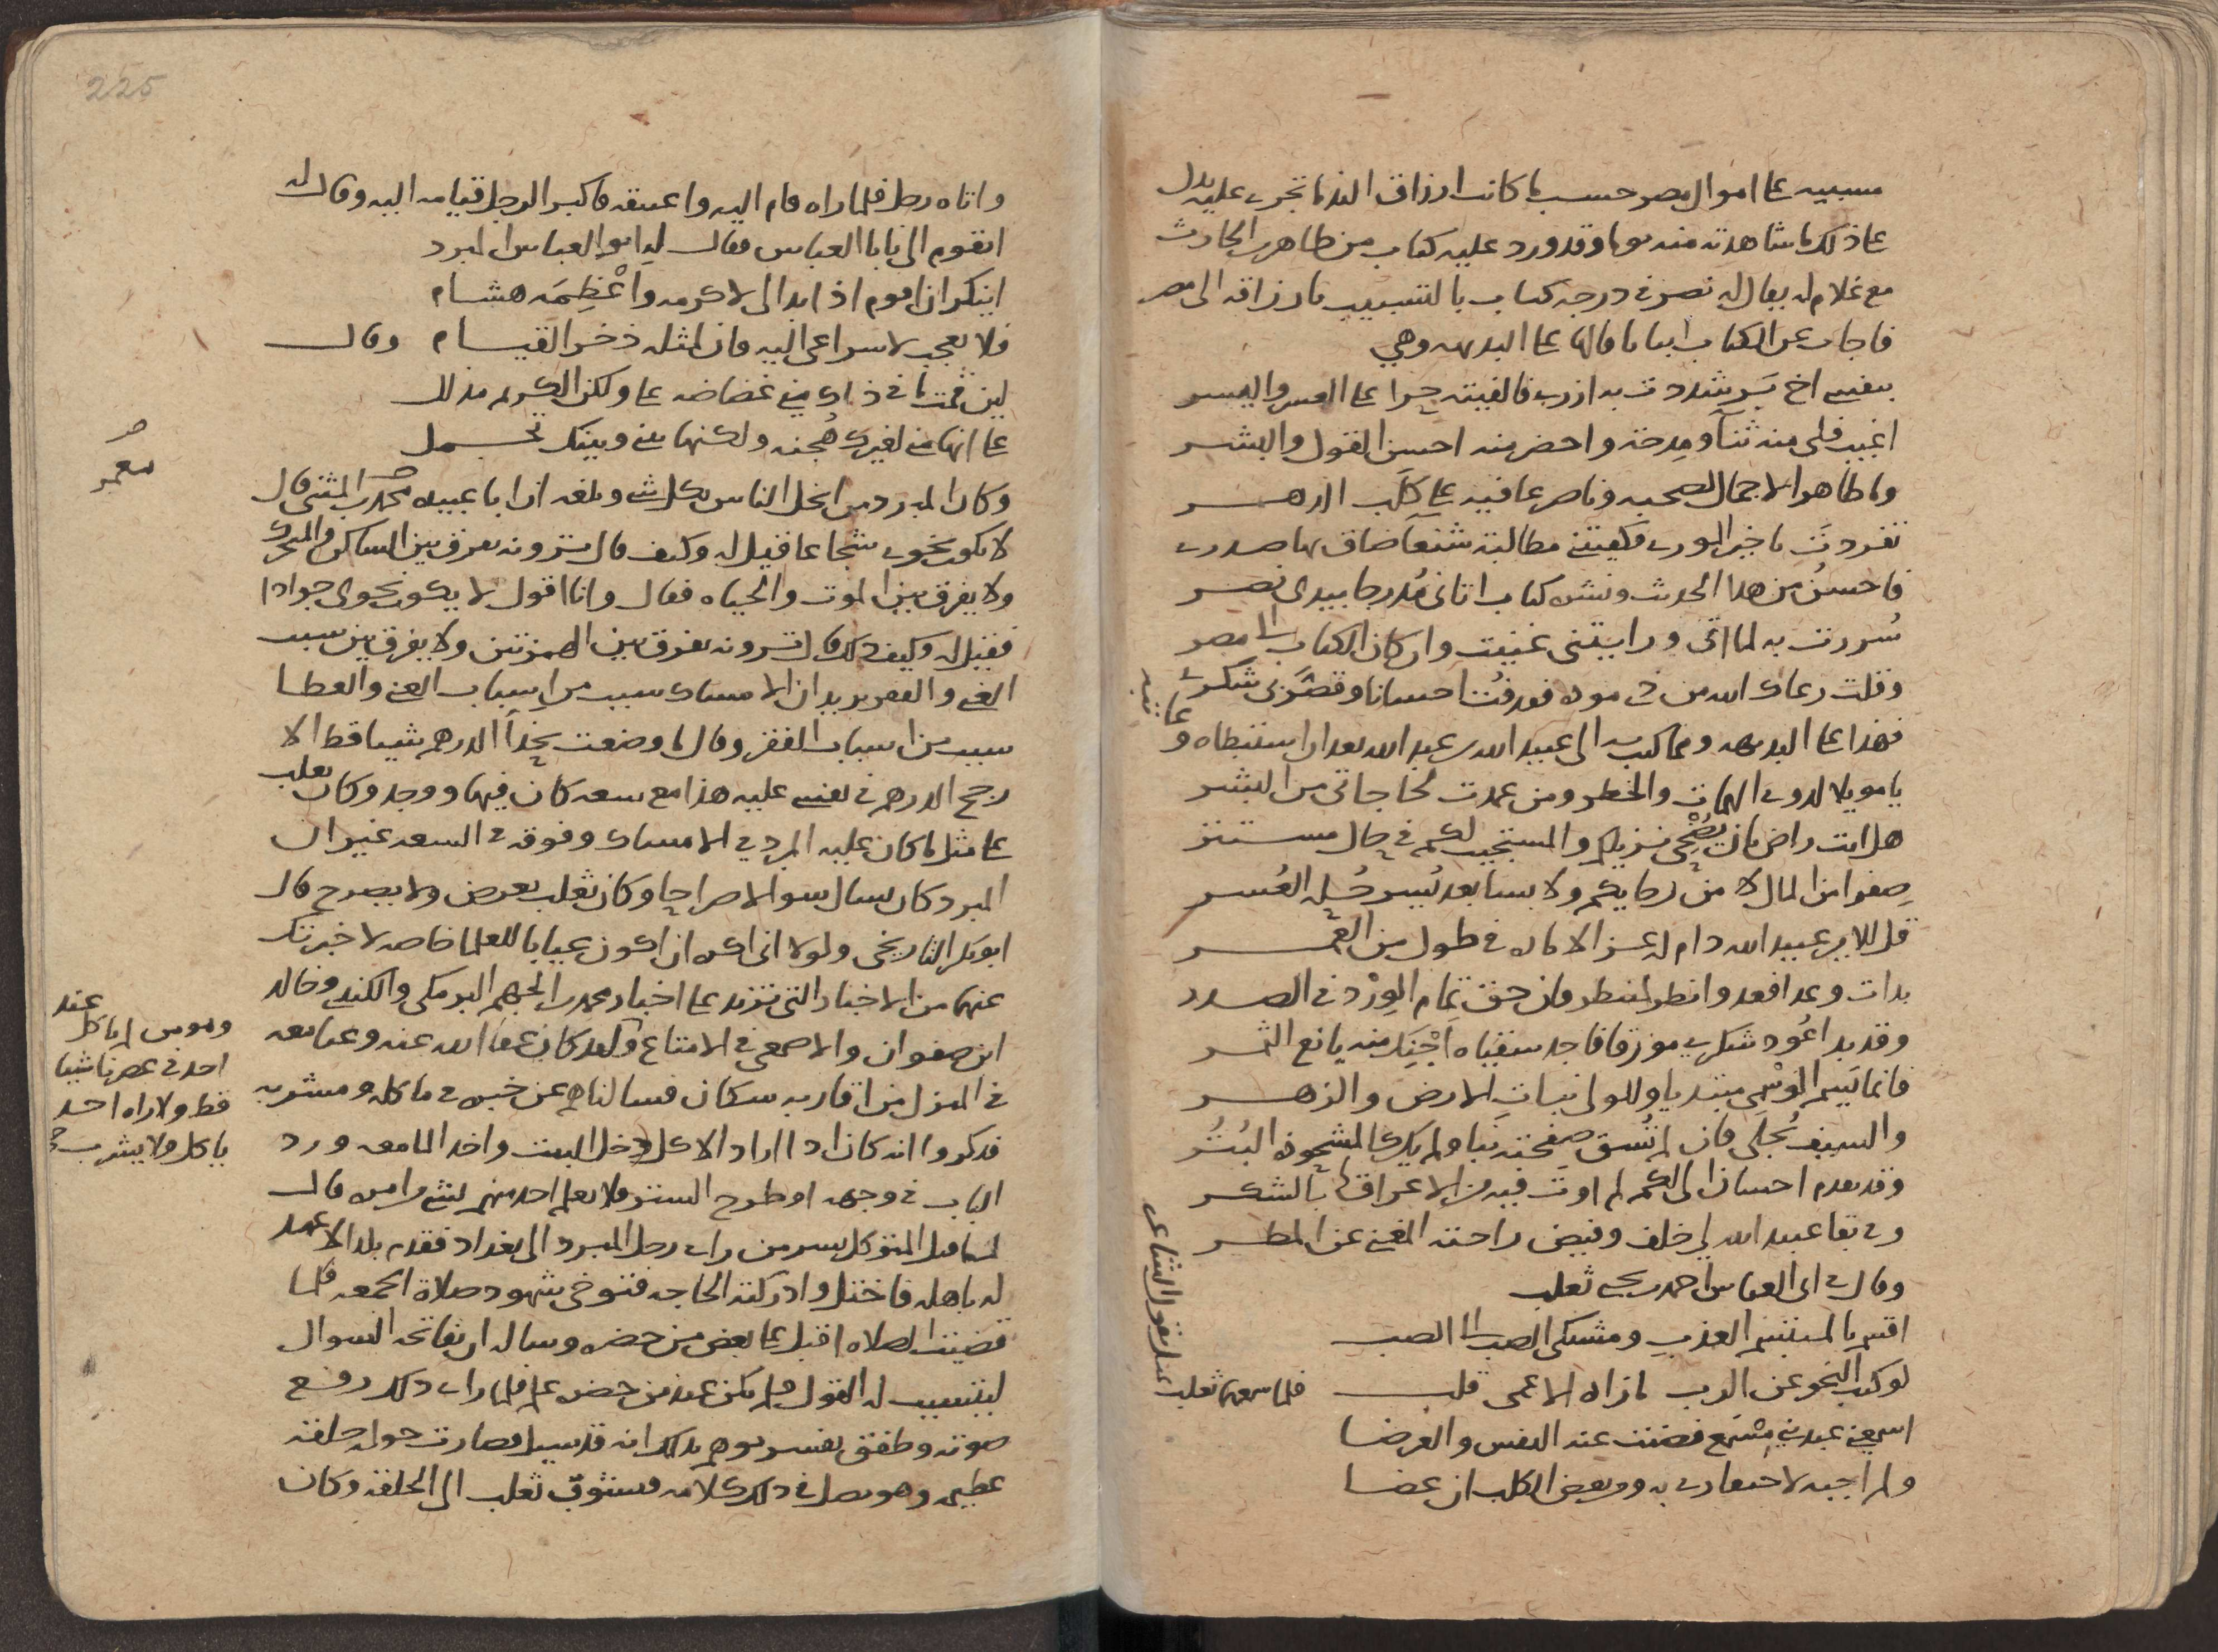 مسببه على اموال مصر حسب ما كانت ارزاق الندما تجرى عليه يدل
على ذلك ما شاهدته منه يوما وقد ورد عليه كتاب من طاهر بن الحارث
مع غلام له يقال له نصر في درجه كتاب بالتسبيب بارزاقه الى مصر
فاجاب عن الكتاب ابياتا قالها على البديهه وهي
بنفسي اخ بَر شددت به ازري فالفيته حرا على العسر واليسر
اغيب فلى منه ثنآ ومدحة واحضر منه احسن القول والبشر
وما طاهر الا جمال لصحبه وناصر عافيه على كَلَب الدهر
تفردتَ يا خير الورى فكفيتنى مطالبة شنعآ ضاق بها صدرى
فاحسنُ من هذا الحديث ونشره كتاب اتانى مُدرجا بيدى نصر
سُررت به لما اتى ورايتنى غنيت وان كان الكتاب الى مصر
وقلت رعاك الله من ذى مودة فقد فُتَّ احسانا وقصَّر بى شكرى
فهذا على البديهه ومما كتب به الى عبيد الله بن عبد الله بعد ان استبطاه وعاتبه
يا موئلا لذوى الهمات والخطر ومن عمدت لحاجاتى من البشر
هل انت راض بان يُضْحِى نزيلكم والمستجير بكم في حال مستتر
صفرا من المال الا من رجايكم ولابسا بعد يُسر حُلة العُسر
قل للامير عبيد الله دام له عز الاماره في طول من العمر
بدات وعدا فعد وانظر لمنتظر وان حق تمام الوِرْد في الصدر
وقد بدا عُود شكرى مورقا فاجد سقياه اجْنِكَ منه يانع الثمر
فانما يَسِم الوسْمى مبتديا وللولى نبات الارض والزهر
والسيف يُجلى فان لم تُسق صفحته نَبا ولم يك كالمشحوذة البُتُر
وقد تقدم احسان الى لكم لم اوت فيه من الاعراق لى بالشكر
وفى بقا عبيد الله لي خلف وفيض راحته المغنى عن المطر
وقال فى ابى العباس احمد بن يحيى ثعلب
اقسم بالمبتسم العذب ومشتكى الصب الى الصب
لو كتب النحو عن الرب ما زاده الا عمى قلب
فلما سمعها ثعلب
تمثل بقول الشاعر
اسمعنى عبد بنى مسْمَع فصنت عنه النفس والعرضا
ولم اجبه لاحتقارى به ومن يعض الكلب ان عضا
225
واتاه رجل فلما راه قام اليه واعتنقه فاكبر الرجل قيامه اليه وقال له
اتقوم الى يابا العباس فقال له ابو العباس المبرد
اينكر ان اقوم اذا بدا لى لاكرمه واُعْظِمَه هشام
فلا تعجب لاسراعى اليه فان لمثله ذخر القيام وقال
لين قمت ما في ذاك منى غضاضه على ولكن الكريم مذلل
على انها منى لغيرك هُجنه ولكنها بينى وبينك تجمل
معمر
وكان المبرد من ابخل الناس بكل شى وبلغه ان ابا عبيده محمد بن المثنى قال
لا يكون نحوى شجاعا فقيل له وكيف قال ترونه يفرق بين الساكن والمتحرك
ولا يفرق بين الموت والحياه فقال وانا اقول لا يكون نحوى جوادا
فقيل له وكيف ذلك قال ترونه يفرق بين الهمزتين ولا يفرق بين سبب
الغنى والفقر يريد ان الامساك سبب من اسباب الغنى والعطا
سبب من اسباب الفقر وقال ما وضعت بحذآ الدرهم شييا قط الا
رجح الدرهم في نفسى عليه هذا مع سعه كان فيها ووجد وكان ثعلب
على مثل ما كان عليه المبرد في الامساك وفوقه في السعه غير ان
المبرد كان يسال سوالا صراحا وكان ثعلب يعرض ولا يصرح قال
ابو بكر التاريخى ولولا انى اكره ان اكون عيابا للعلما خاصه لاخبرتك
عنهما من الاخبار التى تزيد على اخبار محمد بن الجهم البرمكى والكندى وخالد
ابن صفوان والاصمعى في الامتناع ولقد كان عفا الله عنه وعنا معه
في المنزل من اقاربه سكان فسالناهم عن خبره في ماكله ومشربه
فذكروا انه كان اذا اراد الاكل دخل البيت واخذ الما معه ورد
الباب في وجهه او طرح الستر فلا يعلم احد منهم بشى من امره قال
احد في عصرنا شيا
قط ولا راه احد
ياكل ولا يشرب
لما قتل المتوكل بسر من راى رحل المبرد الى بغداد فقدم بلدا لا عهد
له باهله فاختل وادركته الحاجه فتوخى شهود صلاة الجمعه فلما
قضيت الصلاه اقبل على بعض من حضره وساله ان يفاتحه السوال
ليتسبب له القول فلم يكن عند من حضره علم فلما راى ذلك رفع
صوته وطفق يفسر يوهم بذلك انه قد سيل فصارت حوله حلقه
عظيمه وهو يصل في ذلك كلامه فتشوف ثعلب الى الحلقه وكان